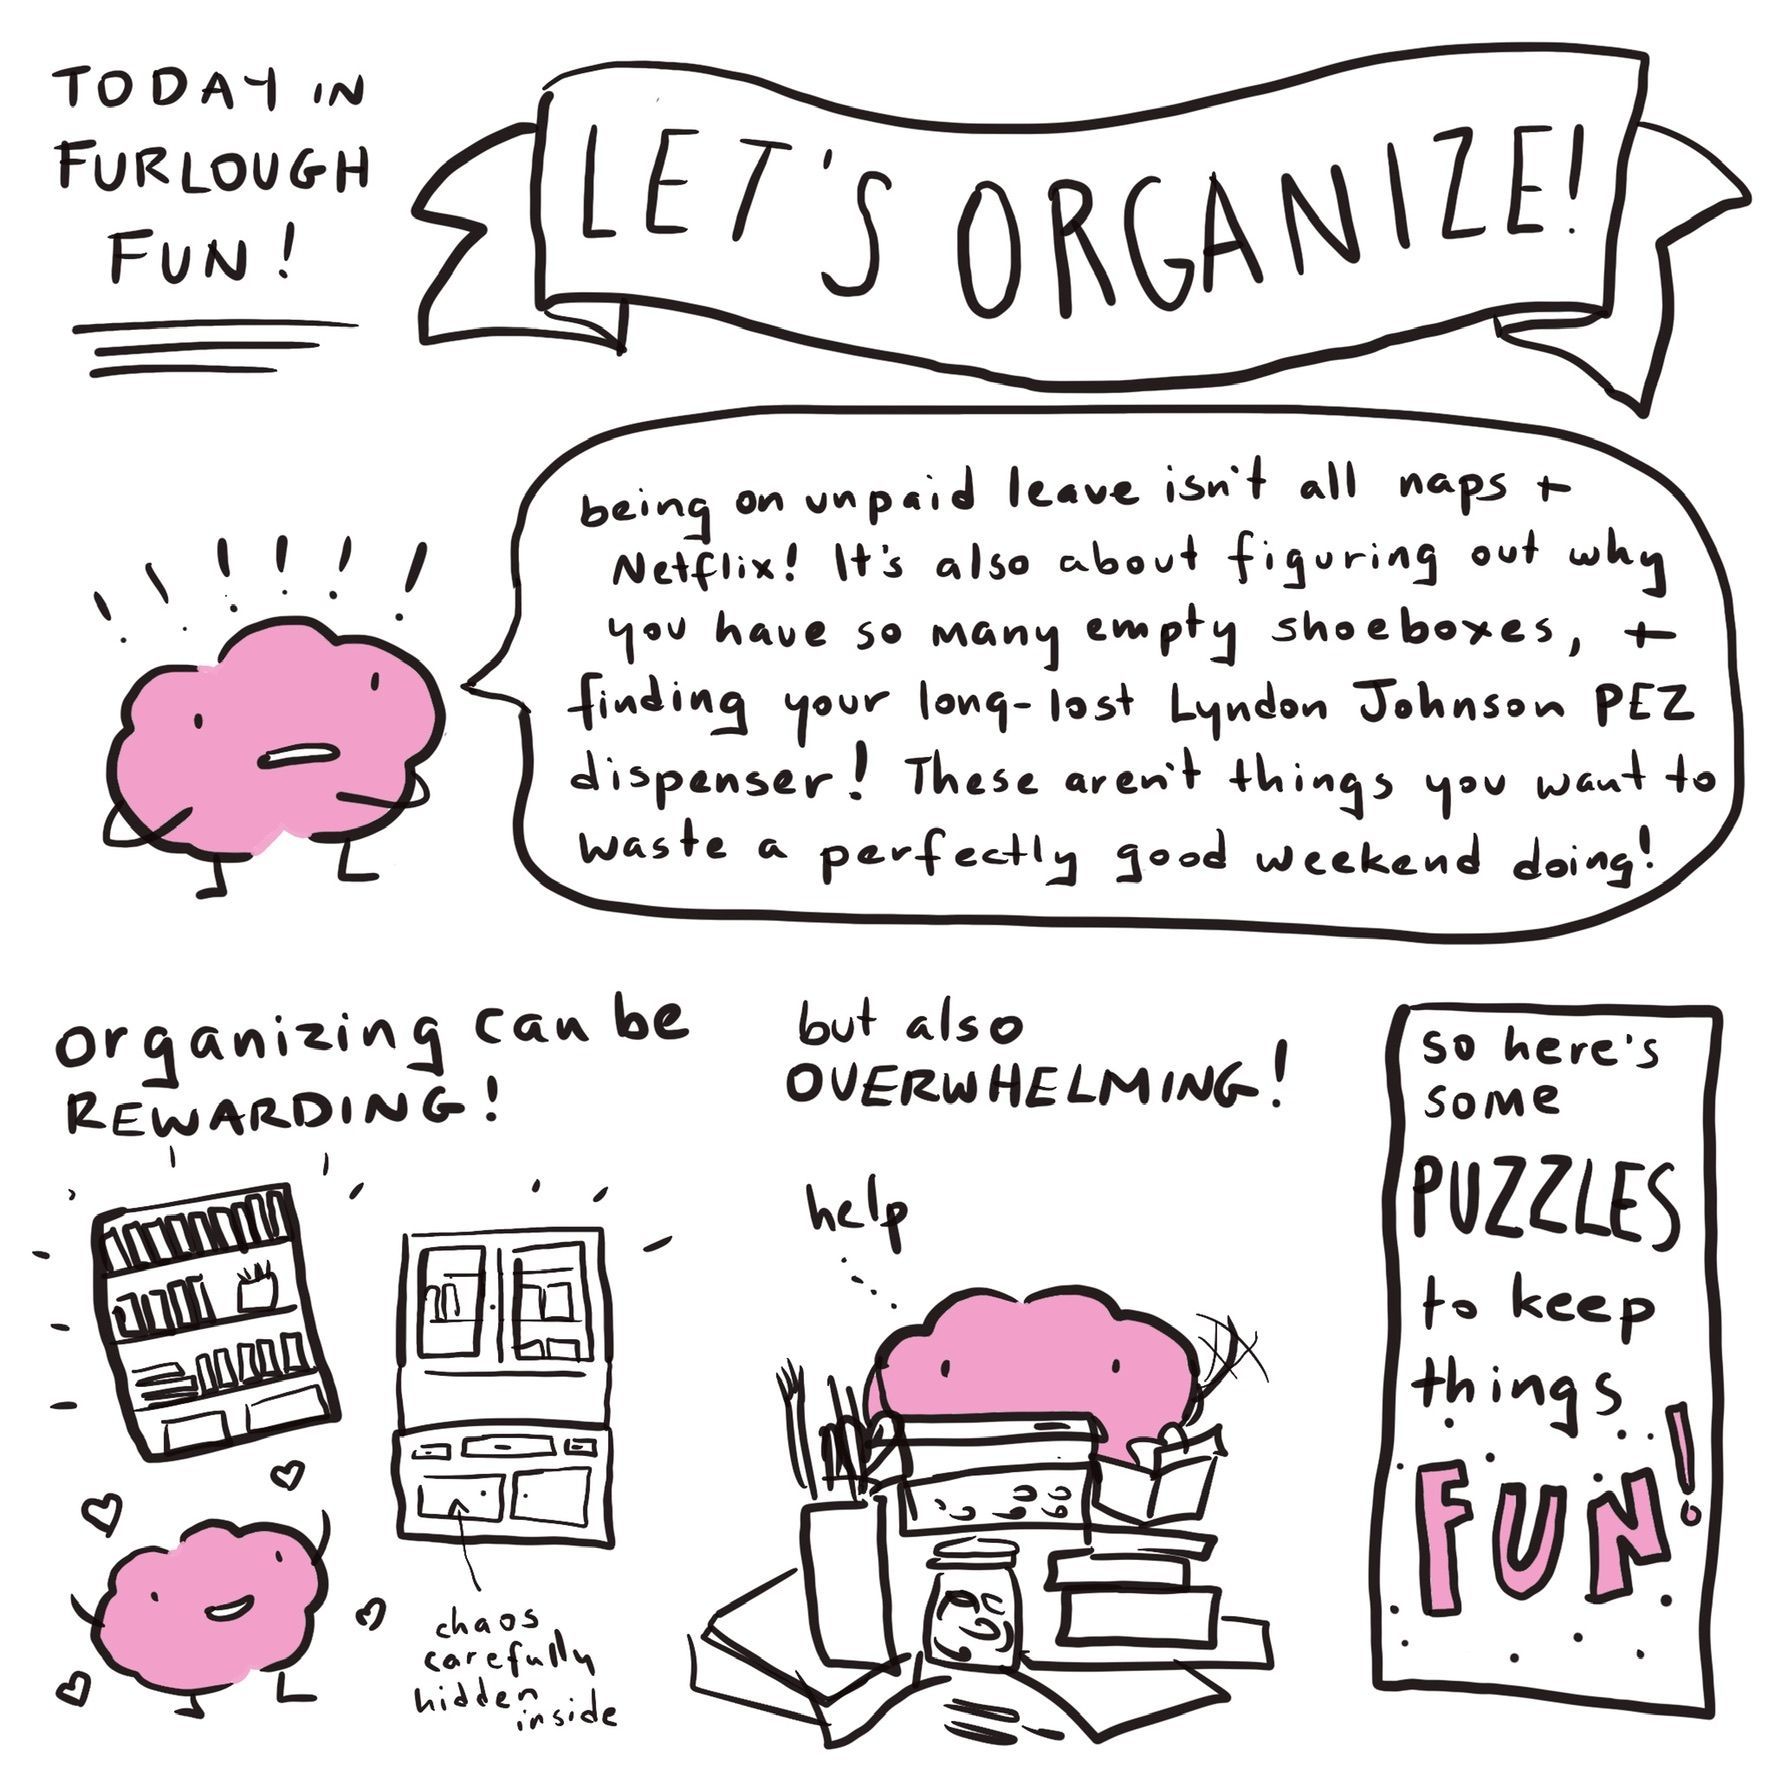 TODAY IN
FURLOUGH
FUN!
LET'S ORGANIZE!
being on unpaid leave isn't all naps +
Netflix! It's also about figuring out why
you have so many empty shoeboxes, +
finding your long-lost Lyndon Johnson PEZ
dispenser! These aren't things you want to
waste a perfectly good weekend doing!
organizing can be
REWARDING!
chaos
carefully
hidden
inside
but also
OVERWHELMING!
help
so here's
some
PUZZLES
to keep
things
FUN!